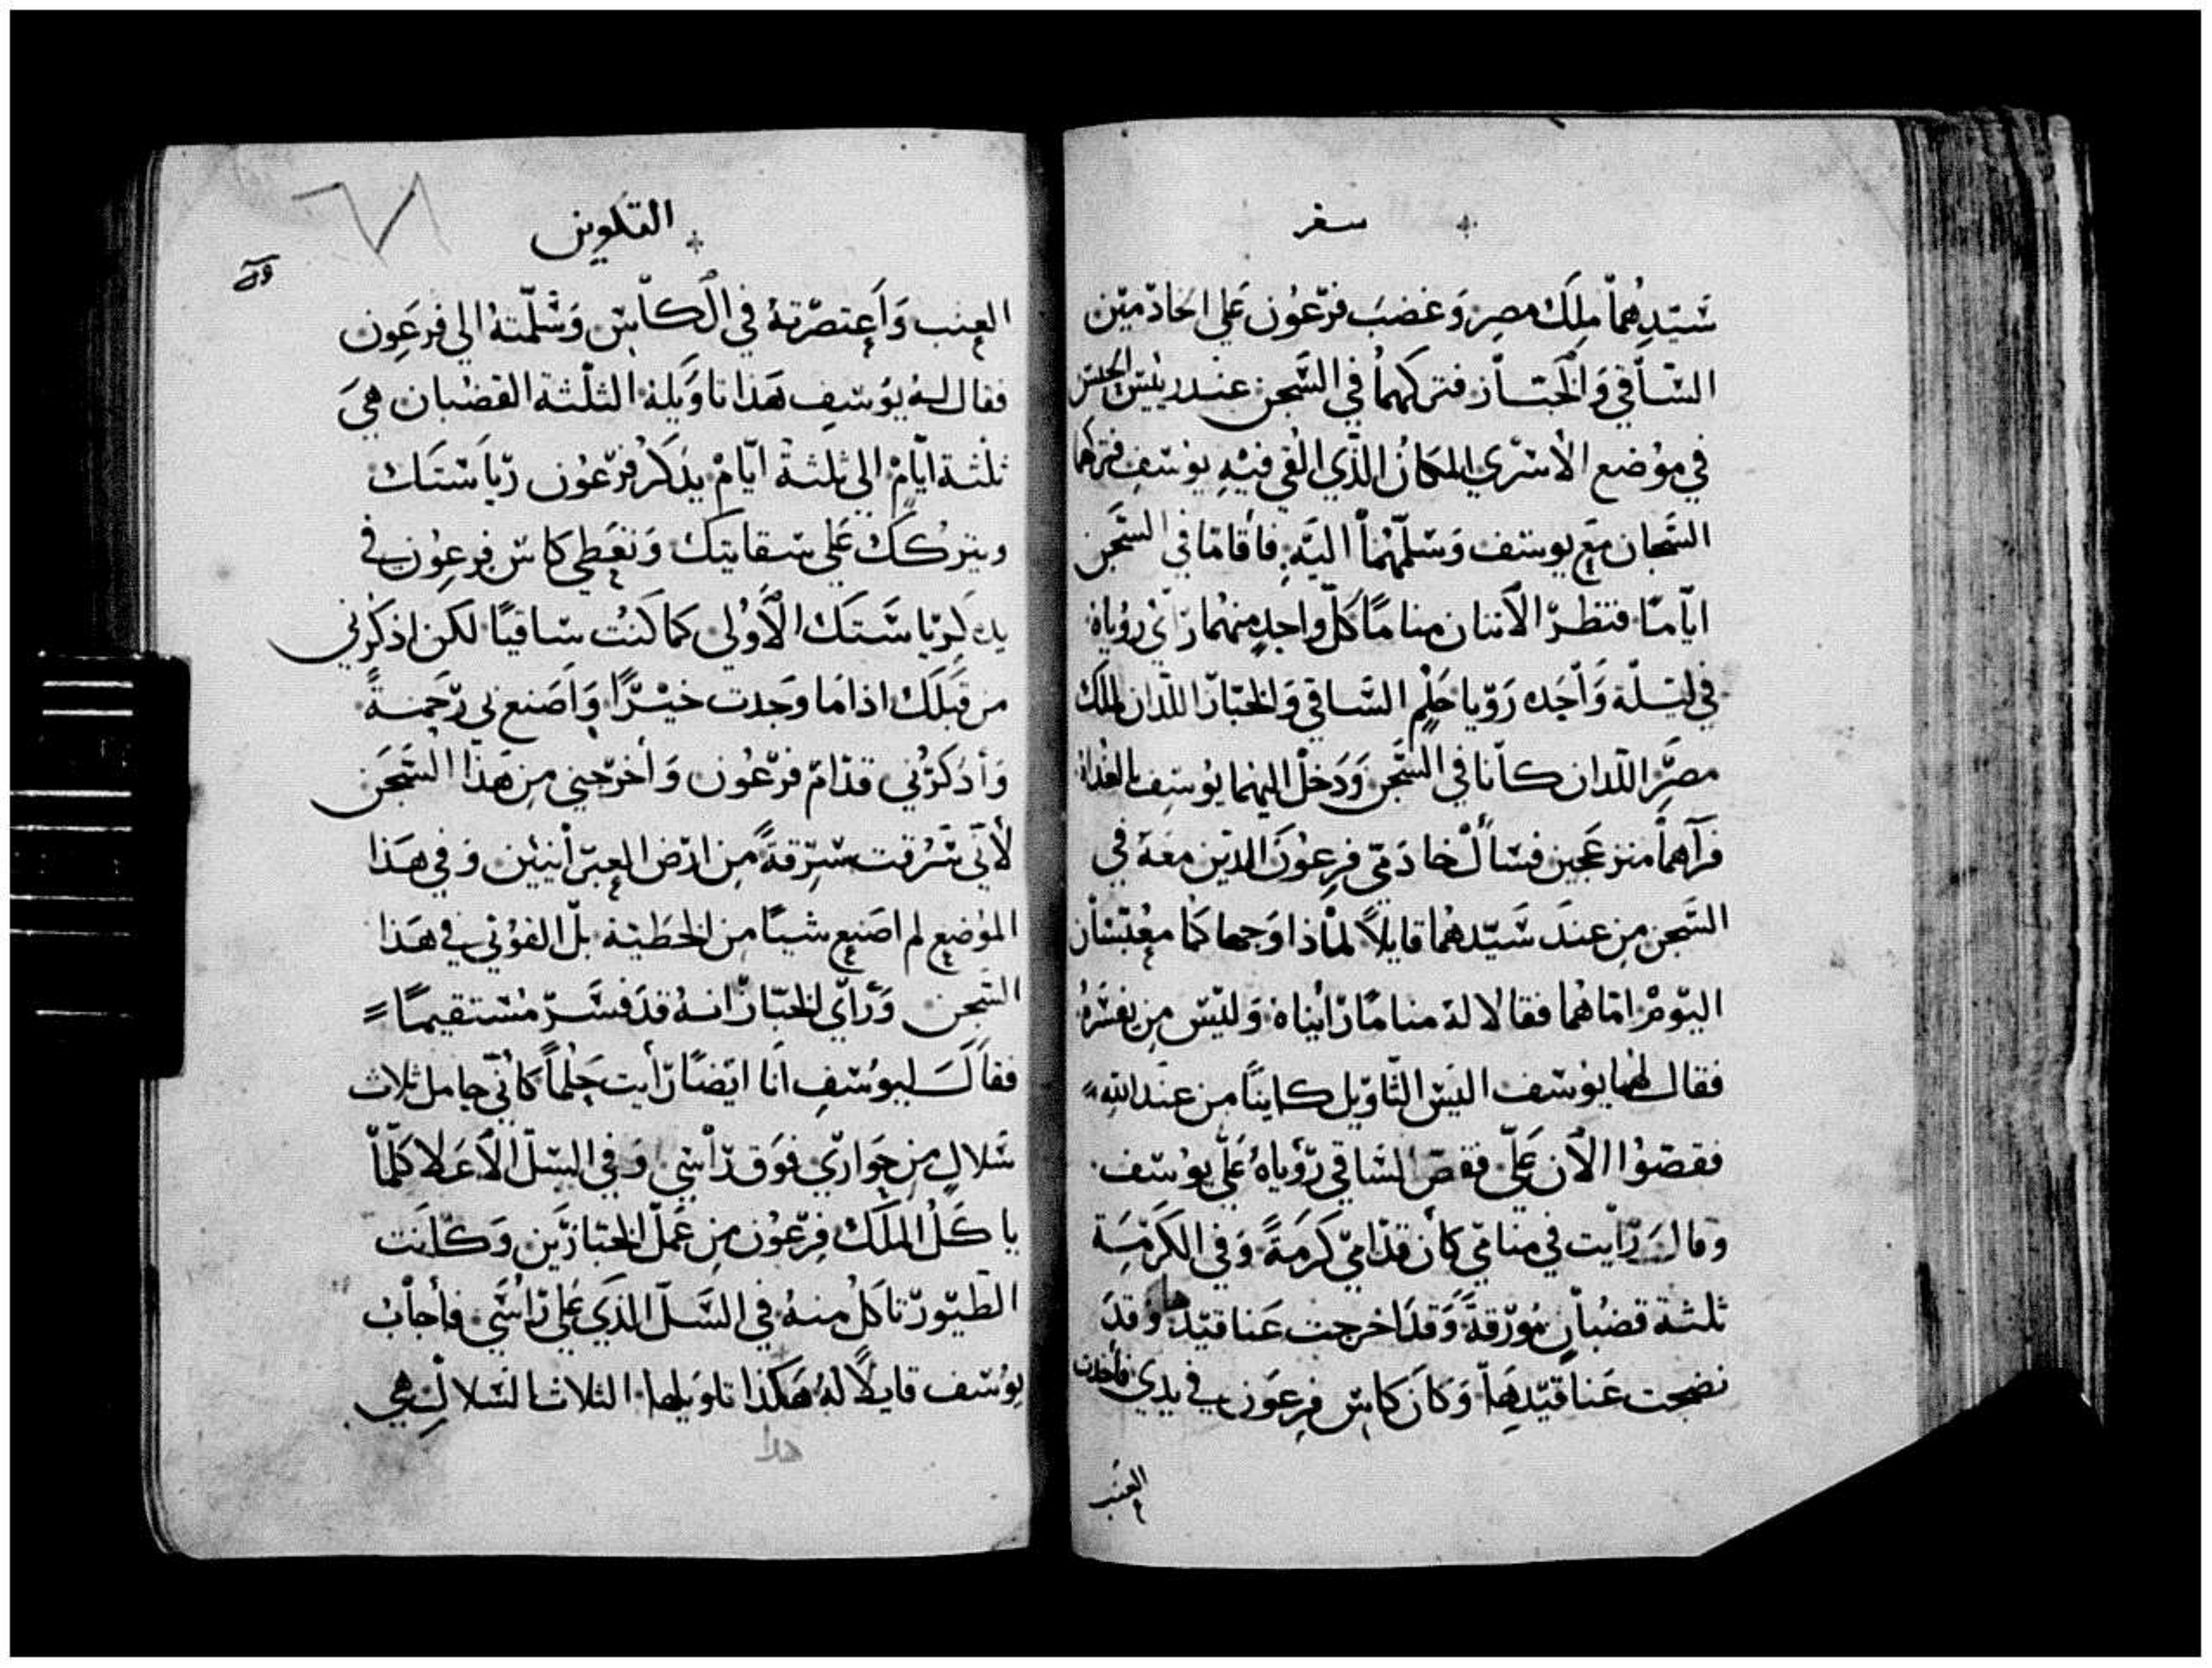 سفر
سَيّدهُماْ ملِكَ مصِر وَغضبَ فرّعُون عَلي الخادّميّن
السّاْقي وَالخبّاز فتركهماُ في السَّجن عندرييّس الحبس
في موُضع الأسّري المكانُ الذّي القي فيْهِ يوُسّف فتركهما
السَّجان معَ يوسّف وَسّلّمْهُماْ اليّهِ فأقامّا في السَّجن
ايّامّا فنظرّ الاثنان مناماً كلّ واحدٍ منهُما رّاي روُياهُ
في ليّلّة وَاْحَده رَوّيا حَلْم السَّاقي وَالخبّاز اللّدان لملك
مصَّر اللّدان كاّنا في السَّجن وَدَخلْ اليهما يوُسّف بالغداة
فرَآهماْ منزعَجين فسْاألْ خادَمّي فرِعوُنَ الدّين معَهُ في
السَّجن مِن عندَ سَّيّدهُما قايلاً لماْذا وَجهاكُما معُبّسْاْن
اليّومْ امّا هُما فقالا لهُ مناماً رّايناهُ وَليّس من يفسّرهُ
فقال لهُما يوُسّف اليسّ التّاوّيل كاينًا من عندَ اللّه
فقصّوُا الاَن عَلّي فقصّ السَّاقي رّؤياهُ عَلّي يوُسّف
وقالَ رّاْيت في منامّي كاْن قدّامّي كرَمَةً وَفي الكَرّمَة
ثلثة قضُباْنٍ موُرّقةً وَقدَ اخرجت عَناقيّدها وَقدَ
نضجت عَناقيّدهَاْ وَكانَ كاسّ فرِعوَن في يدي فأخدت
العنَب
القكوين
العِنب وَاَعِتصرّتهُ في الكاّسّ وَسْلّمتهُ الي فرعَوِن
فقال لهُ يوُسّفِ هَذا تاوَيلهُ الثلْثة القضْبان هيَ
ثلْثة ايّامْ الي ثلثةُ ايّامْ يدَكرُ فرّعوُن رّياَستَك
ويتركُكَ عَلي سّقايتك وَتعَطي كاسّ فرعِوُن في
يدهِ كرّياسَّتَك الأوُلي كما كَنتُ سّاقيًا لكن اذكُرني
من قبَلَك اذا مَا وَجدت خيْرًا وَاَصَنع لي رّحَمةً
وَأدَكرّني قدّامْ فرّعوُن وَأخرّجني مِن هَذا السَّجَن
لأنّي سّرُقت سّرِقةً مِن ارّض العبرّأنيين وَفي هَذا
الموُضِع لم اصَنع شيئًا مِن الخطيّة بلْ القوُني في هَذا
السَّجن وَرّأي الخبّاز انهُ قدَ فسَّرّ مُسّتقيمًا =
فقالَ ليوُسّفِ اَنا ايَضًا رّأيت حَلماً كأنّي حامل ثلاث
سّلالٍ مِن حوَاريّ فوَق رّاْسّي وَفي السّلّ الأعَلا كلّماْ
ياكَلُ الملَك فِرّعوُن مِن عَملّ الخبّازيّن وَكاّنت
الطّيوّر تاكلُ منهُ في السَّلّ الذَي عَلي رّاُسّي فأجاْب
يوُسّف قايلاً لهُ هَكذا تاوَيلها الثلاث السّلالِ هي
هدا